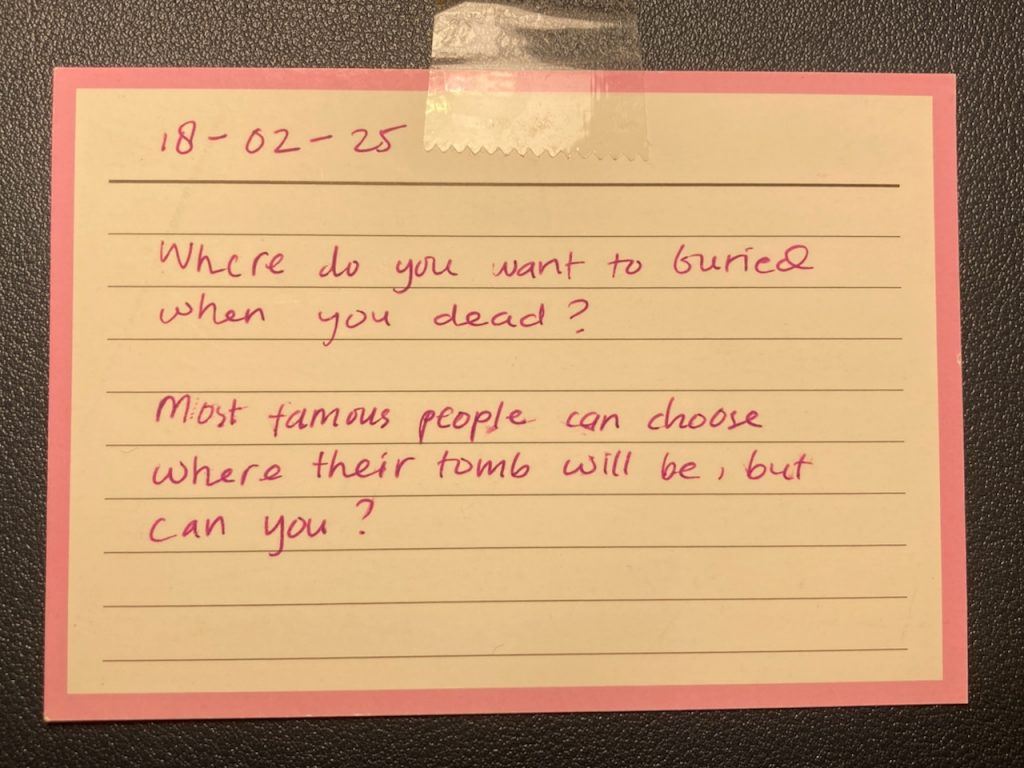 18-02-25
Where do you want to buried
when you dead?
Most famous people can choose
where their tomb will be, but
can you?